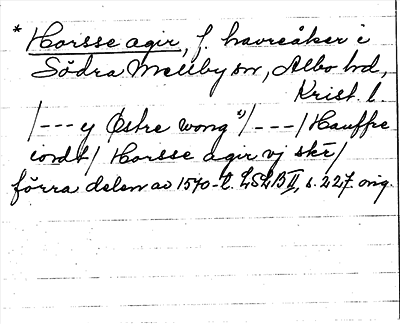 * Horsse agir, f. havreåker i
Södra Mellby sn, Albo hd,
Krist. l.
/--- y Østre wong a)/---/ Hauffre
iordt/ Horsse agir vj skr/
förra delen av 1570-t. LSLB II, s. 227 orig.